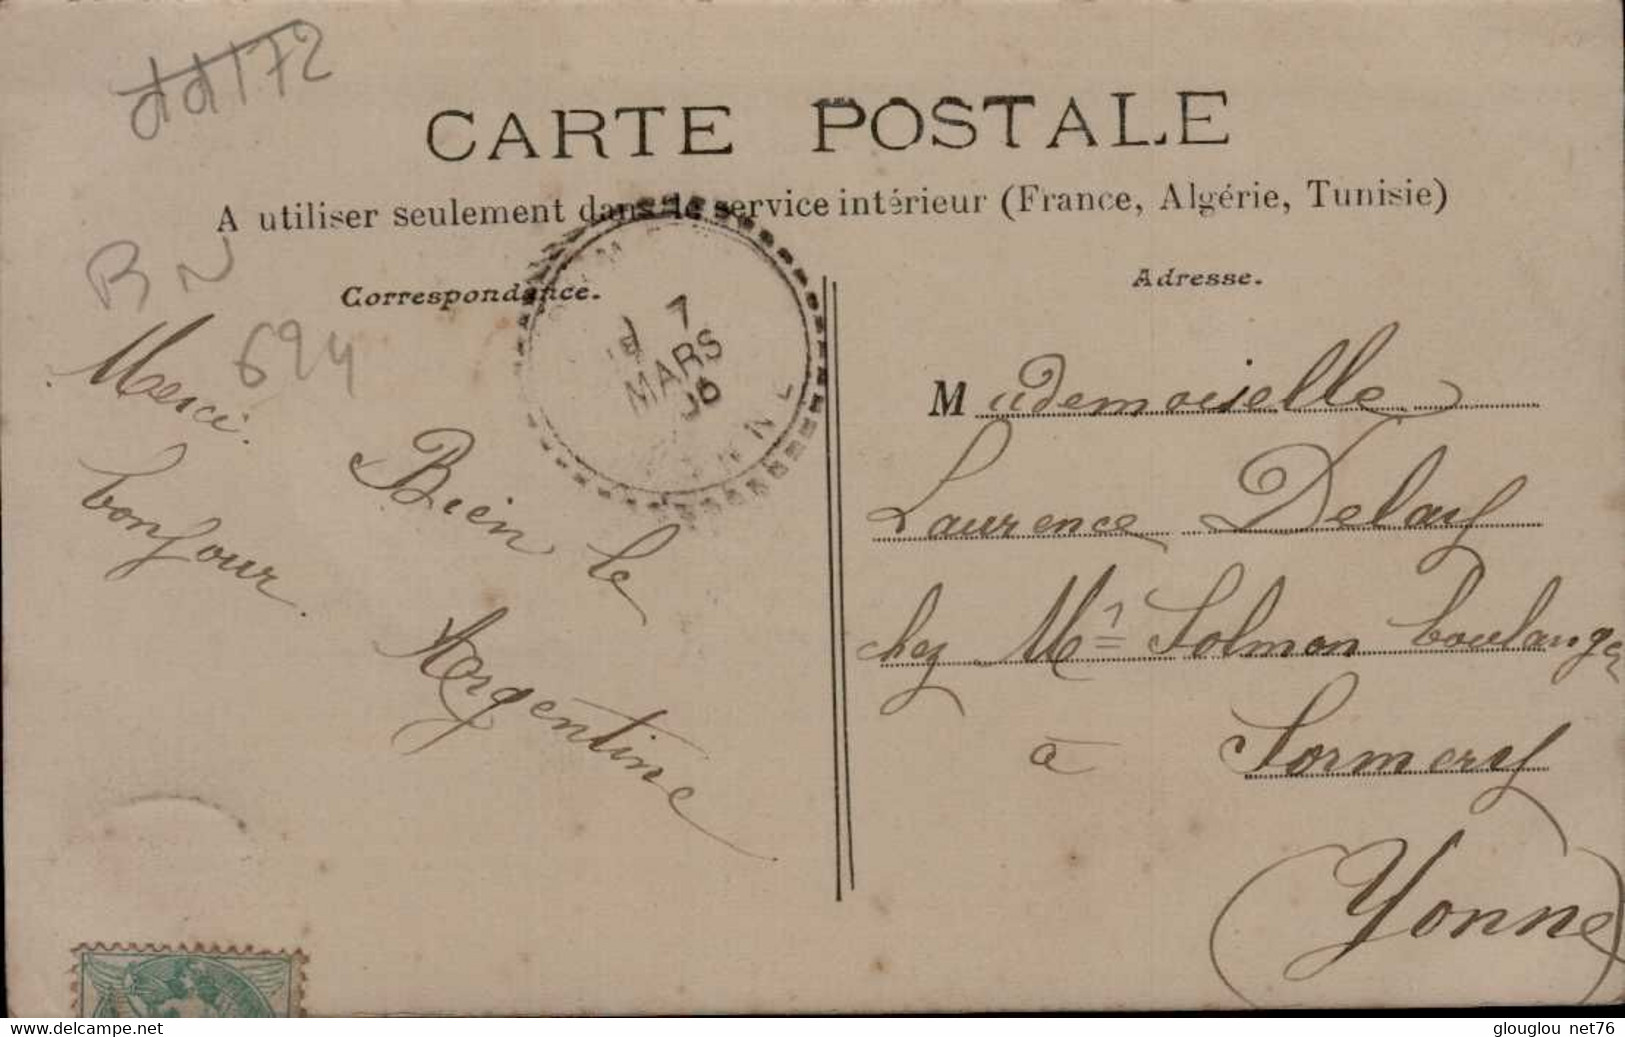 dd172
CARTE POSTALE
A utiliser seulement dans le service intérieur (France, Algérie, Tunisie)
BN
694
Correspondance.
Merci.
Bien le
bonjour.
Argentine
7
MARS
06
Adresse.
Mademoiselle
Laurence Delay
chez Mr Solmon boulanger
à Sormery
(Yonne)
www.delcampe.net
glouglou_net76